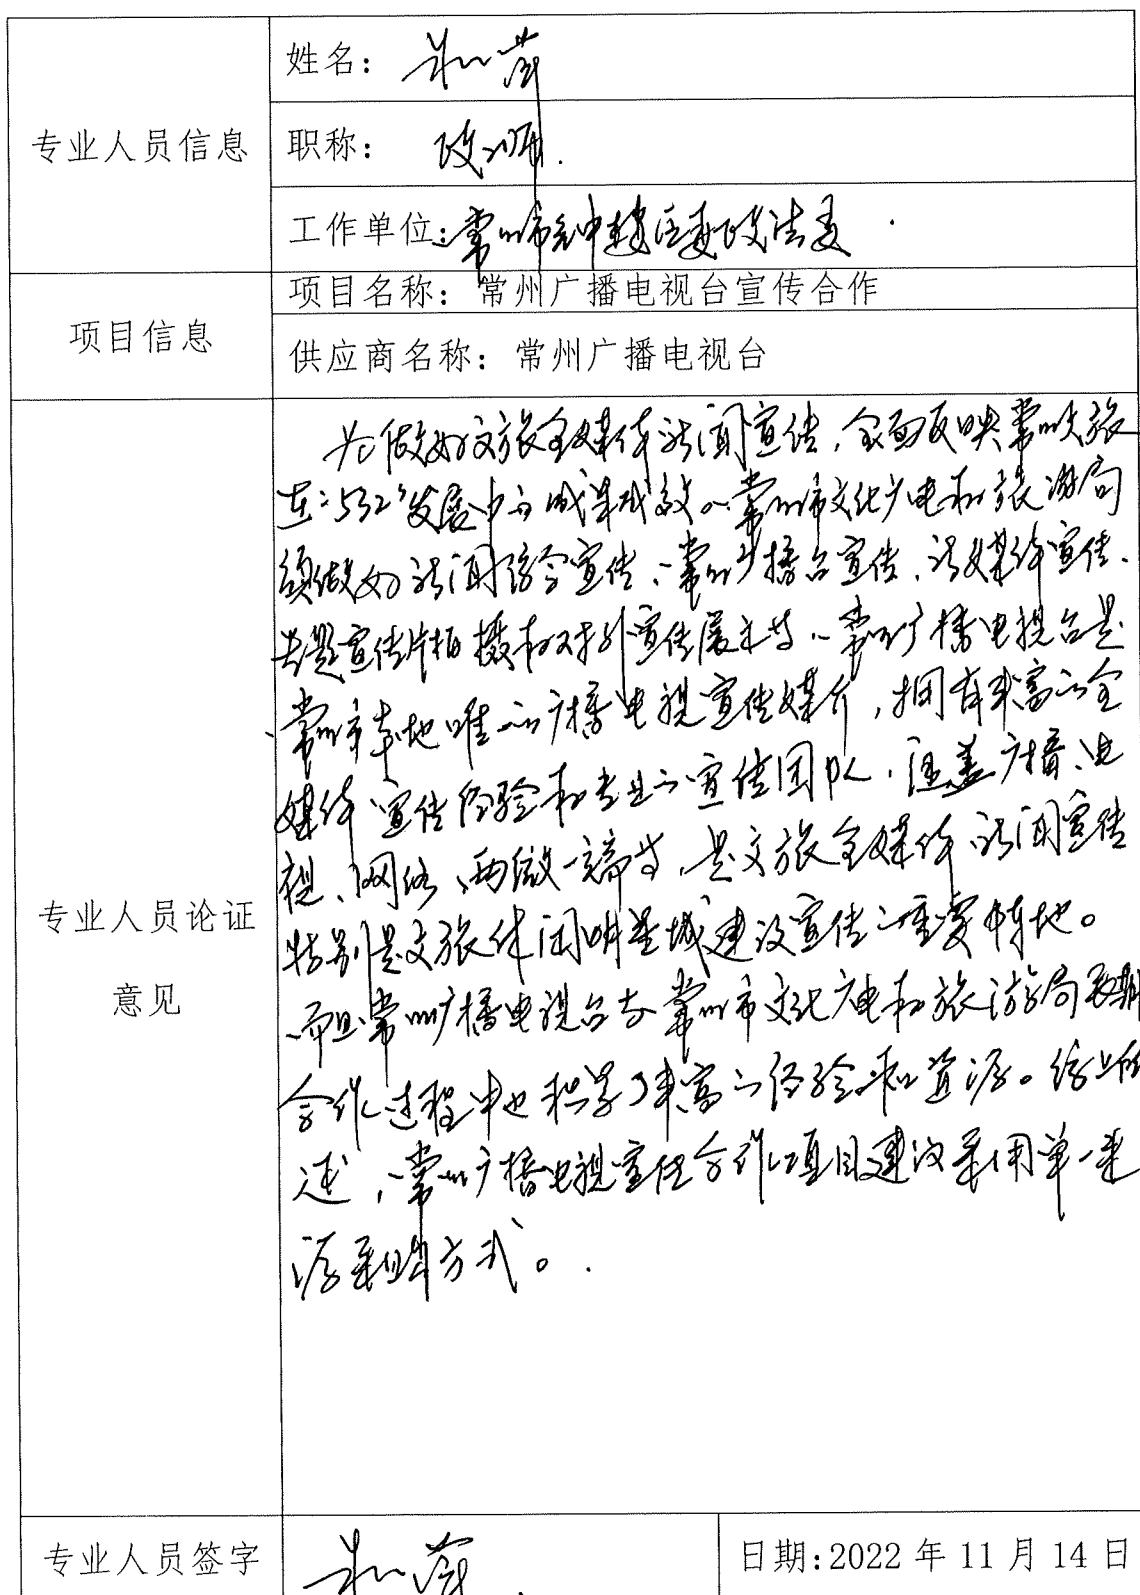 专业人员信息
姓名：
职称：
工作单位：常州市钟楼区委政法委
项目信息
项目名称：常州广播电视台宣传合作
供应商名称：常州广播电视台
专业人员论证
意见
为做好文旅全媒体新闻宣传，全面反映常州文旅
在“532”发展中的成果成效，常州市文化广电和旅游局
须做好新闻综合宣传、常州广播台宣传、新媒体宣传、
专题宣传片拍摄和对外宣传展示等，常州广播电视台是
常州市本地唯一的广播电视宣传媒介，拥有丰富的全
媒体宣传经验和专业的宣传团队，涵盖广播、电
视、网络、两微一端等，是文旅全媒体新闻宣传
特别是文旅休闲明星城建设宣传的重要阵地。
而且常州广播电视台在常州市文化广电和旅游局长期
合作过程中也积累了丰富的经验和资源。综上所
述，常州广播电视宣传合作项目建议采用单一来
源采购方式。
专业人员签字
日期:2022 年 11 月 14 日